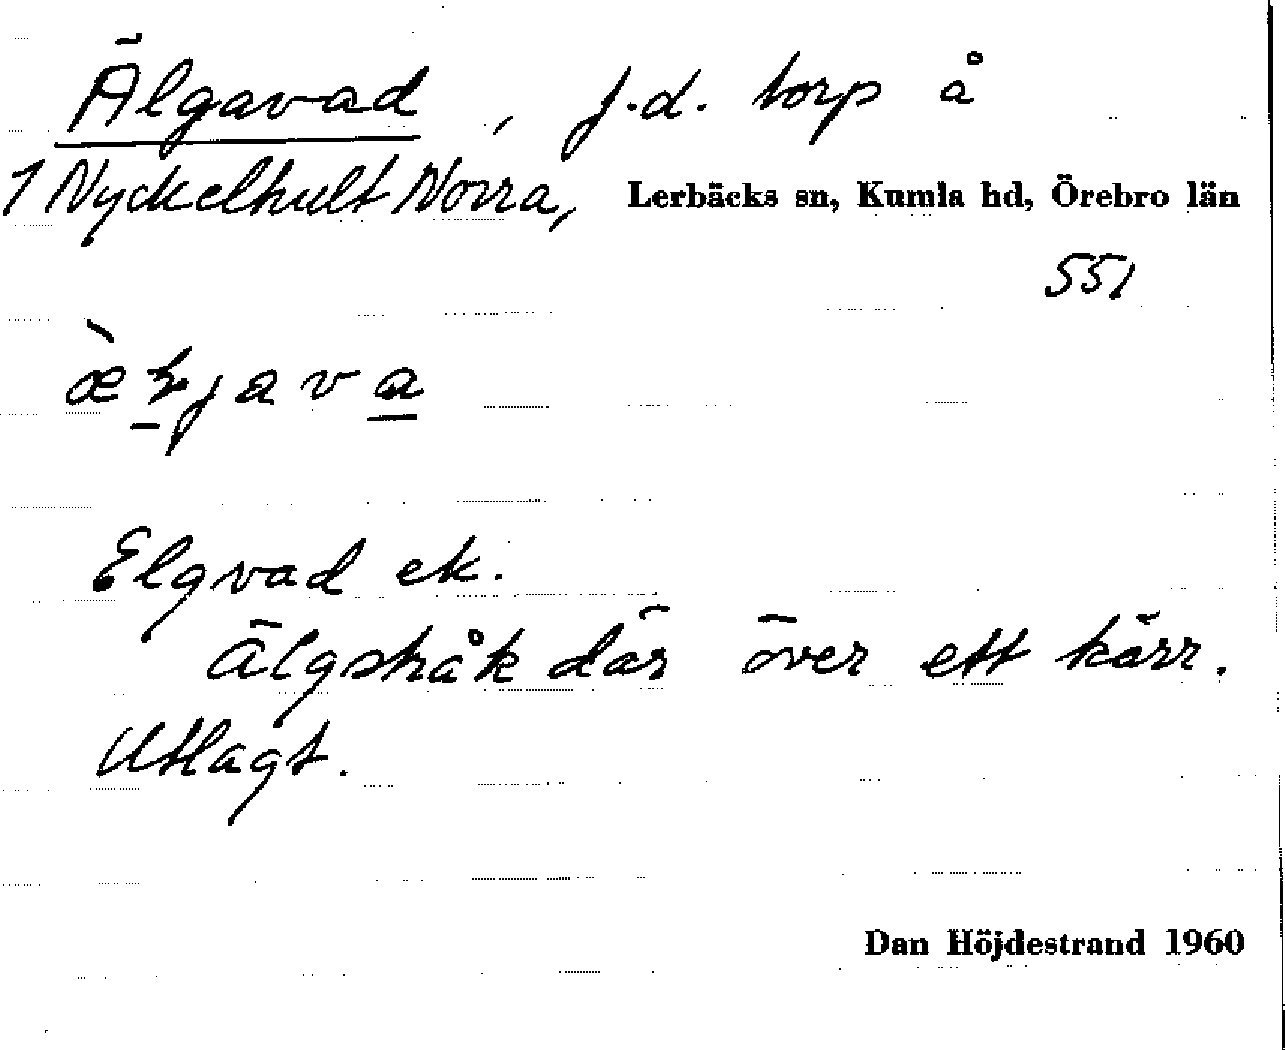 Älgavad, f.d. torp å
1 Nyckelhult Norra, Lerbäcks sn, Kumla hd, Örebro län
551
Elgvad ek.
Älgstråk där över ett kärr.
Utlagt.
Dan Höjdestrand 1960